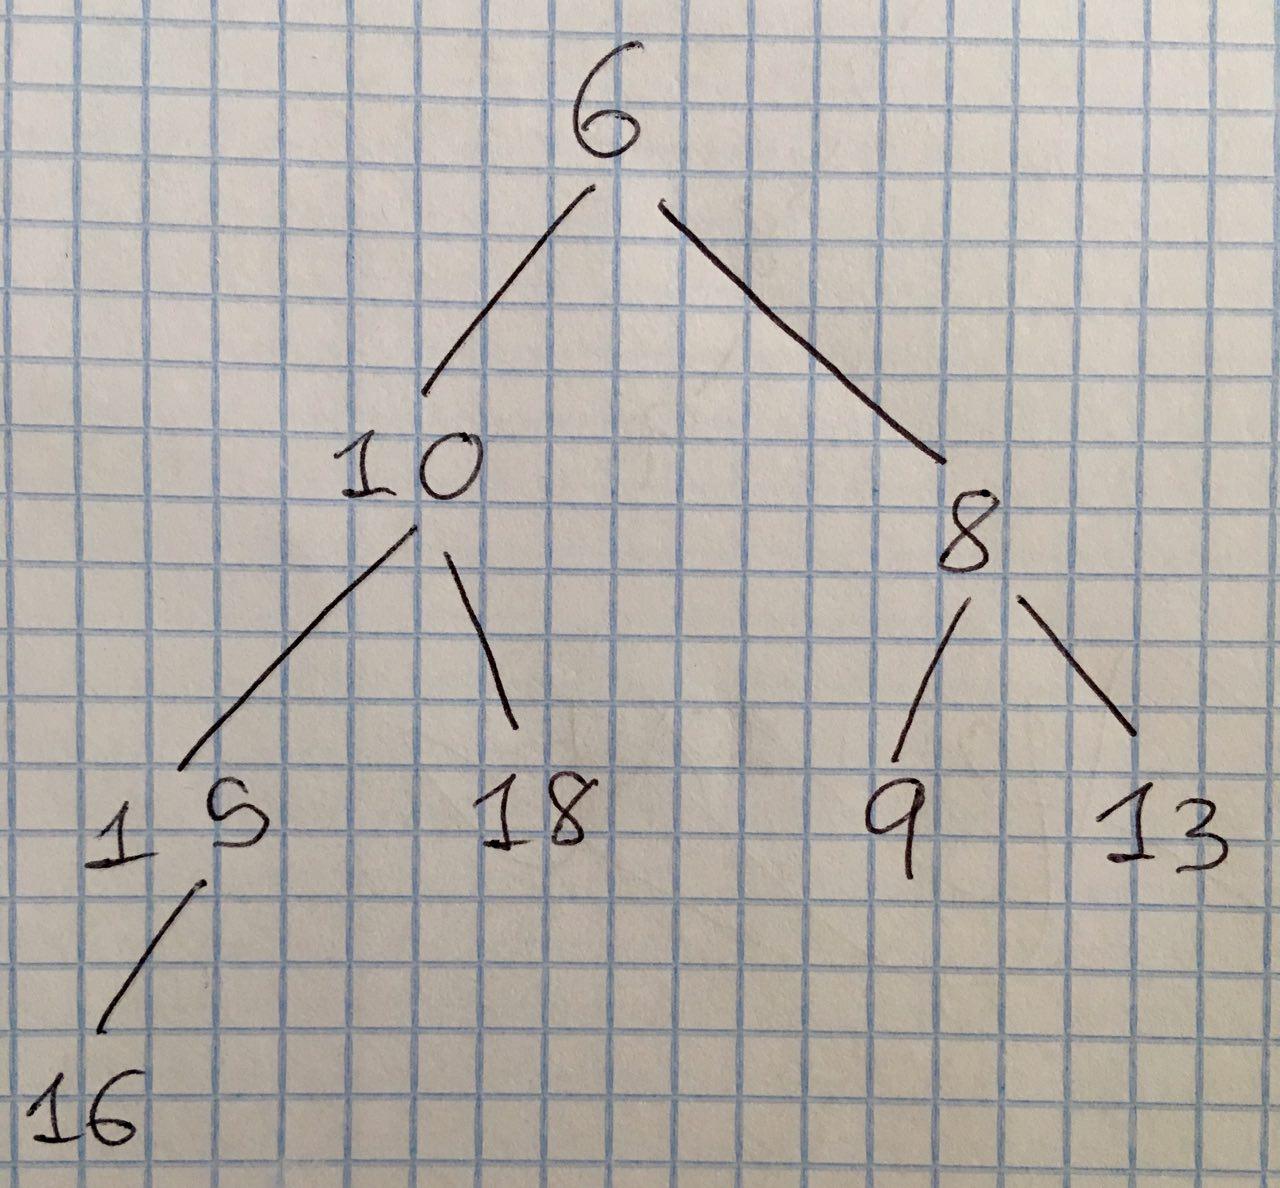 6
10
8
15 18 9 13
16